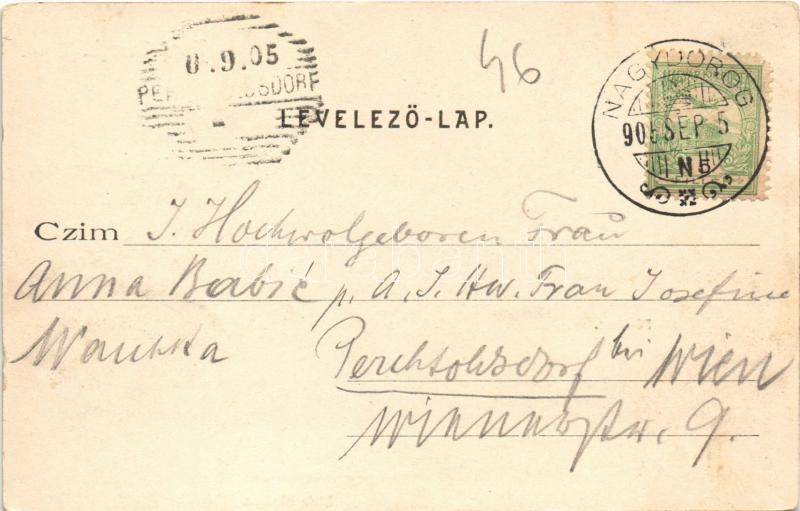 6.9.05
PER SDORF
46
NAGYDOROG
905 SEP 5
N 5
LEVELEZŐ-LAP.
Czim I. Hochwolgeboren Frau
Anna Babić p. A. I. Hw. Frau Josefine
Perchtoldsdorf bei Wien
Wiennerstr. 9.
darabanth